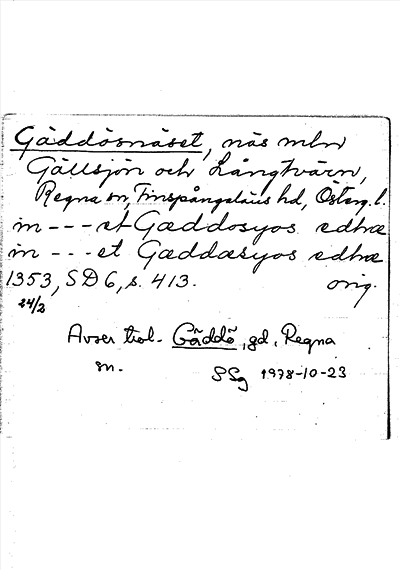 Gäddösnäset, näs mln
Gällsjön och Långtvärn,
Regna sn, Finspångaläns hd, Österg. l.
in --- et Gæddosyos edhæ
in --- et Gæddæsyos edhæ
1353, SD 6, s. 413. orig.
24/2
Avser trol. Gäddö, gd, Regna
sn. SSg 1978-10-23